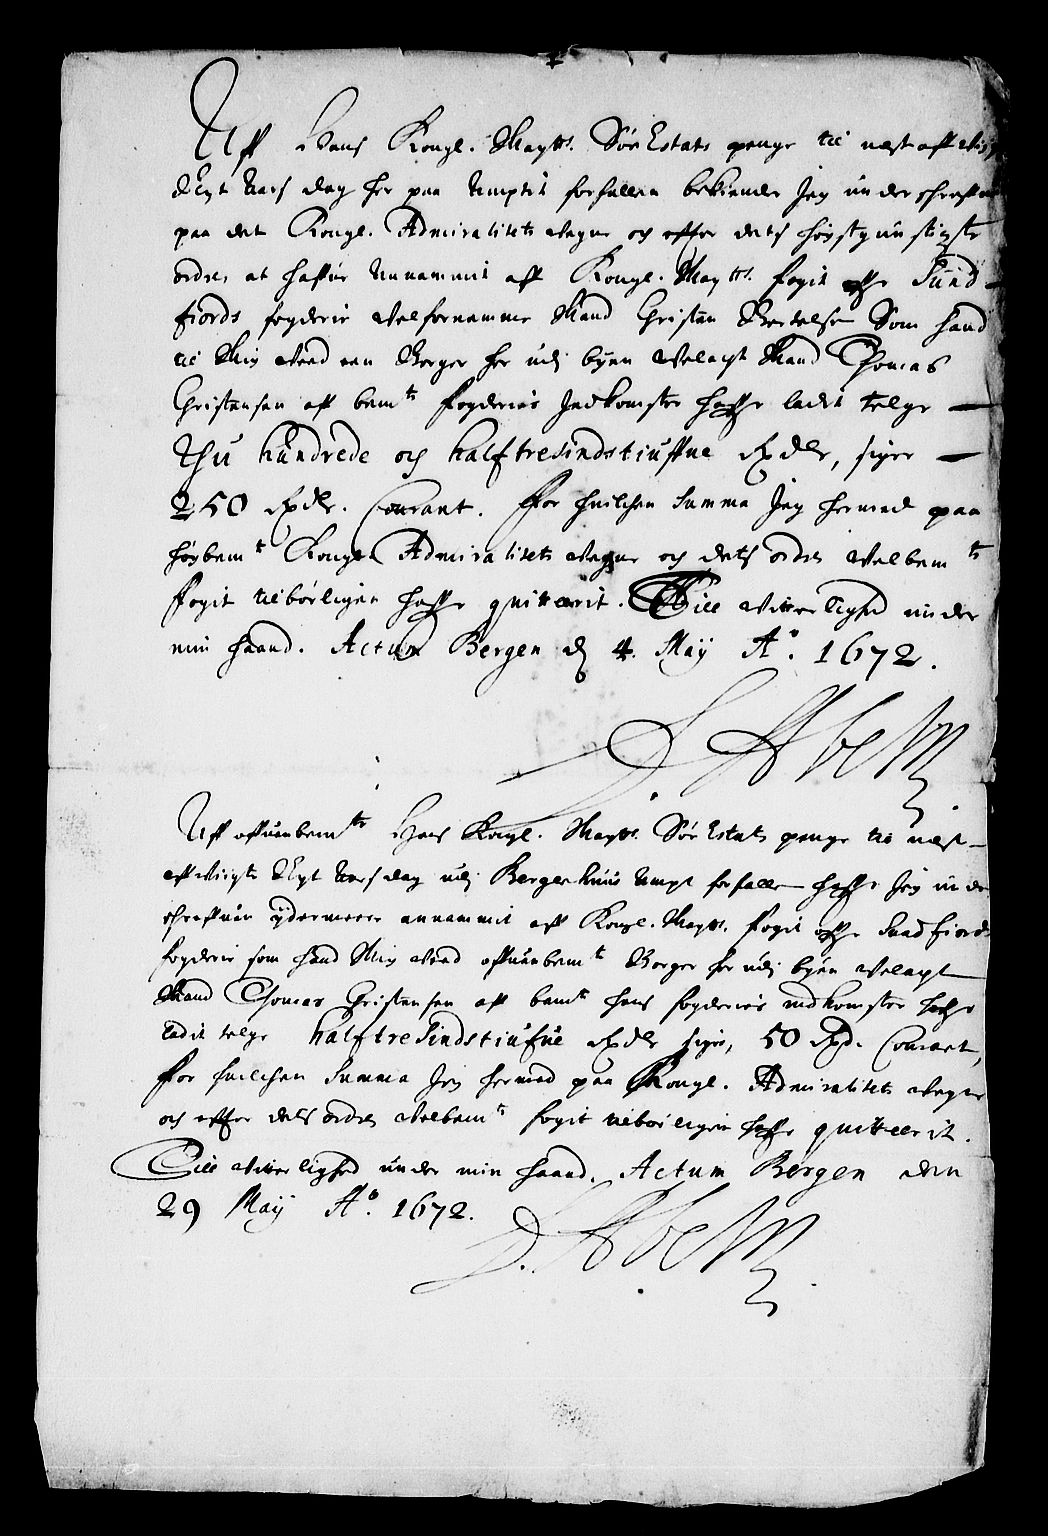 Aff Hans Kongl. Maÿtts. Sør Estats penge til næst affvigt
Nyt Aars dag her paa Amptet forfallen bekiender Jeg underschreffne
paa det Kongl. Admiralitets Vegne og effter dets høystgunstigste
ordre, at haffue Annammit aff Kongl. Maÿtts. fogit offr Sund-
fiords fogderie Velfornemme Mand Christen Bertelsen Som hand
til Mig Ved een Borger her udi byen Velagt Mand Thomas
Christensen aff bemte fogderies Indkomster haffr ladit telge —
Thu hundrede och halftresindstiuffue Rxdlr, siger —
250 Rxdlr. Courant. For huilchen Summa Jeg hermed paa
høybemte Kongl. Admiralitets Vegne och dets ordre Velbemte
fogit tilbørligen haffr quitterit. Till Vitterlighed under
min haand. Actum Bergen d 4. Maÿ Ao. 1672.
Aff offuenbemte Hans Kongl. Maÿtts. Sør Estats penge til næst-
affvigte Nyt Aarsdag udi Bergenhuus Ampt forfallen haffr Jeg under
schreffuen ÿdermeere annammit aff Kongl. Maÿtts. fogit offr Sundfiords
fogderie som hand Mig Ved offuenbemte Borger her udi byen Velagt
Mand Thomas Christensen aff bemte hans fogderies indkomster haffr
ladit telge halftresindstiufue Rxdlr siger, 50 Rxd. Courant,
For huilchen Summa Jeg hermed paa Kongl. Admiralitets Vegne
och effter dets ordre Velbemte fogit tilbørligen haffr quitterit.
Till Vitterlighed under min haand. Actum Bergen den
29 Maÿ Ao. 1672.